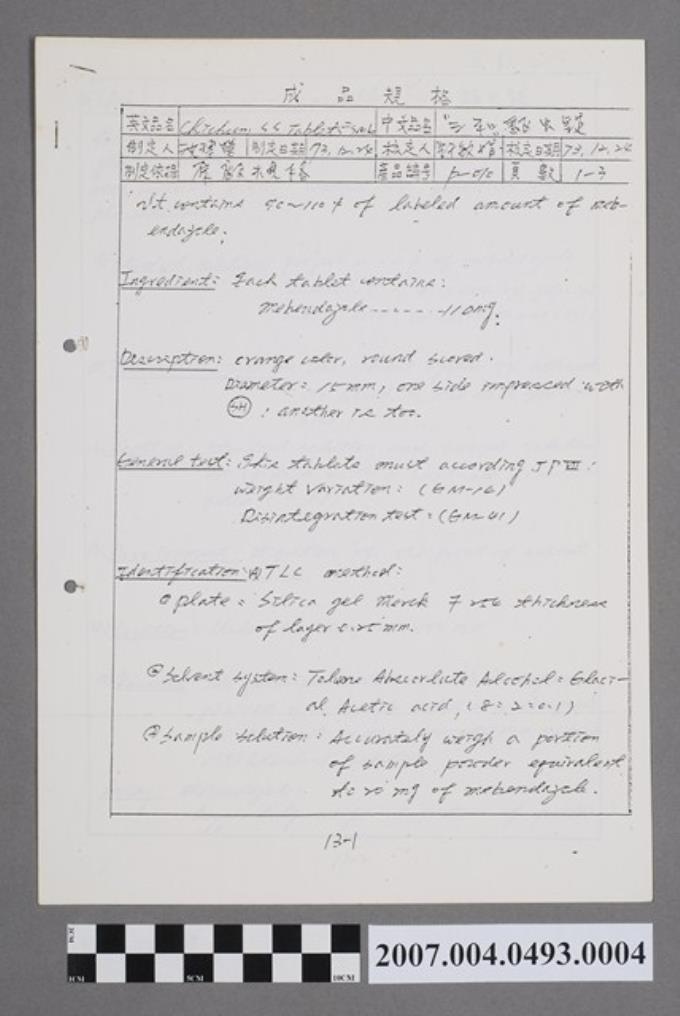 成品規格
英文品名 Chichun SS Tablet 中文品名 "三和" 錠
制定人 制定日期 73.12.24 核定人 核定日期 73.12.24
制定依據 產品編號 p-010 頁數 1-3
It contains 90~110% of labeled amount of meb-
endazole.
Ingredient: Each tablet contains:
mebendazole------110mg.
Description: orange color, round scored.
Diameter: 15mm, one side impressed with
SH : another is too.
General test: This tablets must according JP :
weight variation: (GM-16)
Disintegration test: (GM-41)
Identification: (A) TLC method:
plate: Silica gel Merck 7 256 thickness
of layer 0.25 mm.
Solvent system: Tolene Absorlute Alcohol: Glaci-
al Acetic acid, (8:2:0.1)
Sample solution: Accurately weigh a portion
of sample powder equivalent
to 20 mg of mebendazole.
13-1
1CM 5CM 10CM
2007.004.0493.0004